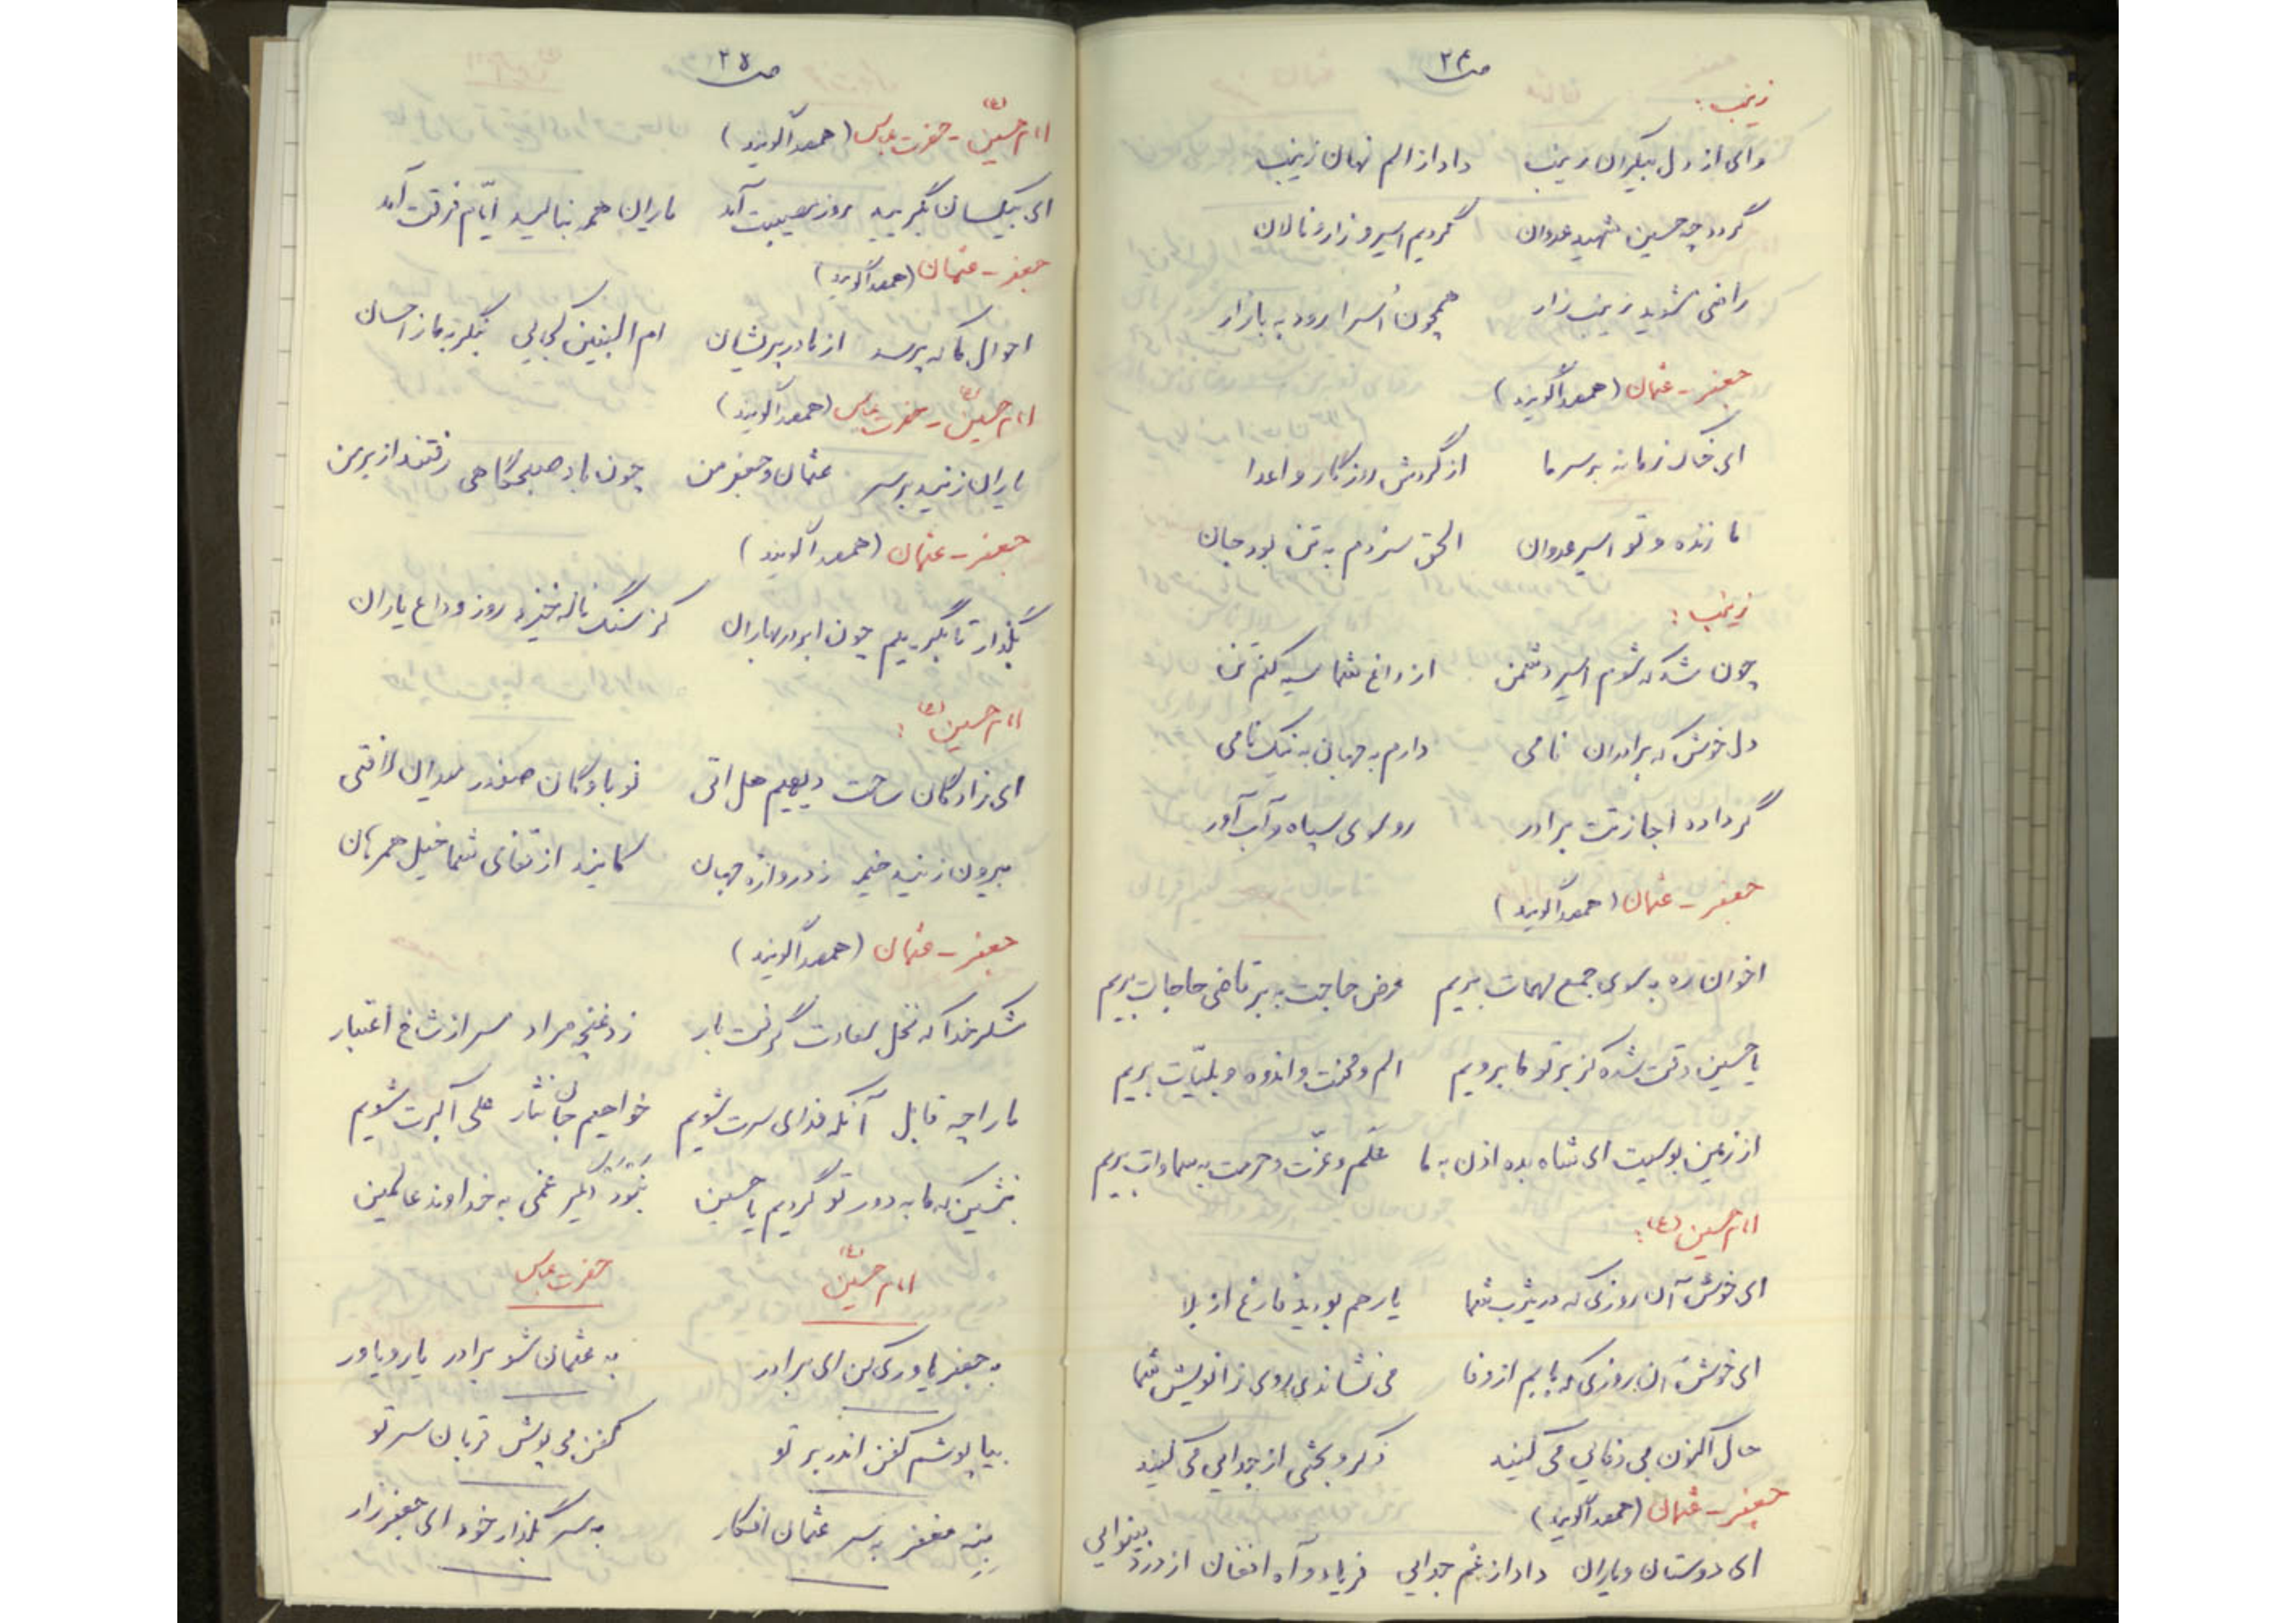 ص ۲۴
زینب:
وای از دل بیکران زینب داد از الم نهان زینب
گردد چه حسین شهید عدوان گردیم اسیر و زار و نالان
راضی نشوید زینب زار همچون اُسرا رود به بازار
جعفر - عثمان (همصدا گویند)
ای خاک زمانه بر سر ما از گردش روزگار و اعدا
ما زنده و تو اسیر عدوان الحق سزدم به تن بود جان
زینب:
چون شد که شوم اسیر دشمن از داغ شما سیه کنم تن
دل خوش که برادران نامی دارم به جهان به نیک نامی
گر داده اجازتت برادر رو سوی سپاه و آب آور
جعفر - عثمان (همصدا گویند)
اخوان ره به سوی جمع مهمات بریم عرض حاجت به بر قاضی حاجات بریم
یا حسین وقت شده کز بر تو ما برویم الم و محنت و اندوه و بلیّات بریم
از زمین بوسیت ای شاه بده اذن به ما عَلَم و عزّت و حرمت به سماوات بریم
امام حسین (ع):
ای خوش آن روزی که در یثرب شما یار هم بودید فارغ از بلا
ای خوش آن روزی که بابم از وفا می نشاندی روی زانویش شما
حال اکنون بی وفایی می کنید ذکر و بحثی از جدایی می کنید
جعفر - عثمان (همصدا گویند)
ای دوستان و یاران داد از غم جدایی فریاد و آه افغان از درد بینوایی
ص ۲۵
امام حسین (ع) - حضرت عباس (همصدا گویند)
ای بیکسان بگریید روز مصیبت آمد یاران همه بنالید ایّام فرقت آمد
جعفر - عثمان (همصدا گویند)
احوال ما که پرسد از مادر پریشان ام البنین کجایی بنگر به ما ز احسان
امام حسین (ع) - حضرت عباس (همصدا گویند)
یاران زنید بر سر عثمان و جعفر من چون باد صبحگاهی رفتند از بر من
جعفر - عثمان (همصدا گویند)
بگذار تا بگرییم چون ابر در بهاران کز سنگ ناله خیزد روز وداع یاران
امام حسین (ع):
ای زادگان ساحت دیهیم هل اتی نوباوگان صفدر میدان لافتی
بیرون زنید خیمه ز دروازه جهان کایند از قفای شما خیل همرهان
جعفر - عثمان (همصدا گویند)
شکر خدا که نخل سعادت گرفت بار زد غنچه مراد سر از شاخ اعتبار
ما را چه قابل آنکه فدای سرت شویم خواهیم جان نثار علی اکبرت شویم
بنشین که ما به دور تو گردیم یا حسین نَبوَد دگر غمی به خداوند عالمین
امام حسین (ع) حضرت عباس
به جعفر یاوری کن ای برادر به عثمان شو برادر یار و یاور
بیا پوشم کفن اندر بر تو کفن می پوش قربان سر تو
بنه مغفر به سر عثمان افکار به سر بگذار خود ای جعفر زار